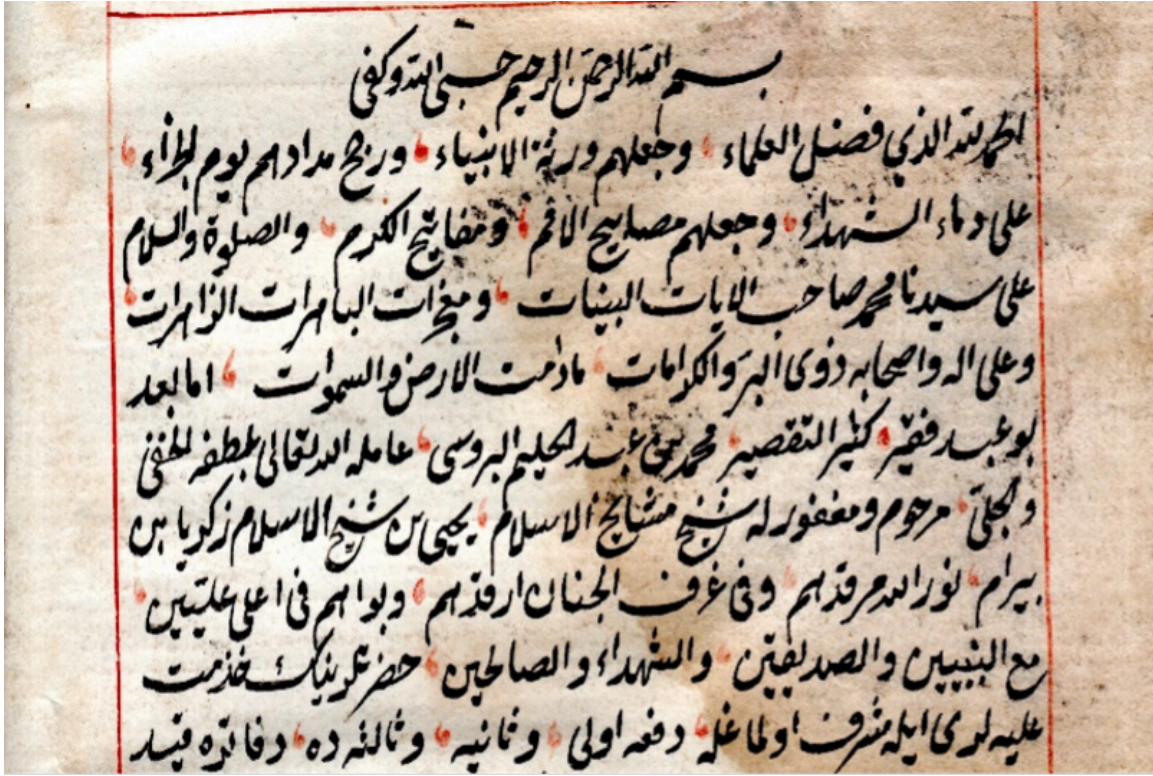 بسم الله الرحمن الرحيم حسبى الله وكفى
الحمد لله الذي فضل العلماء وجعلهم ورثة الانبياء ورجح مدادهم يوم الجزاء
على دماء الشهداء وجعلهم مصابيح الامم ومفاتيح الكرم والصلوة والسلام
على سيدنا محمد صاحب الايات البينات ومعجزات الباهرات الزاهرات
وعلى اله واصحابه ذوى البر والكرامات مادمت الارض والسموات اما بعد
بو عبد فقير كثير التقصير محمد بن عبد الحليم البروسى عامله الله تعالى بلطفه الخفى
والجلى مرحوم ومغفور له شيخ مشايخ الاسلام يحيى بن شيخ الاسلام زكريا بن
بيرام نور الله مرقدهم وفى غرف الجنان ارقدهم وبواهم فى اعلى عليين
مع النبيين والصديقين والشهداء والصالحين حضرتلرينك خذمت
عليه لرى ايله مشرف اولماغله دفعه اولى وثانيه وثالثه ده دفاتره قيد